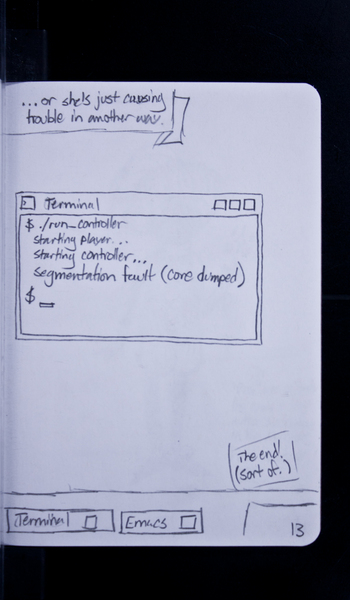 ...or she's just causing
trouble in another way.
Terminal
$ ./run_controller
starting player...
starting controller...
segmentation fault (core dumped)
$
The end!
(sort of.)
Terminal
Emacs
13